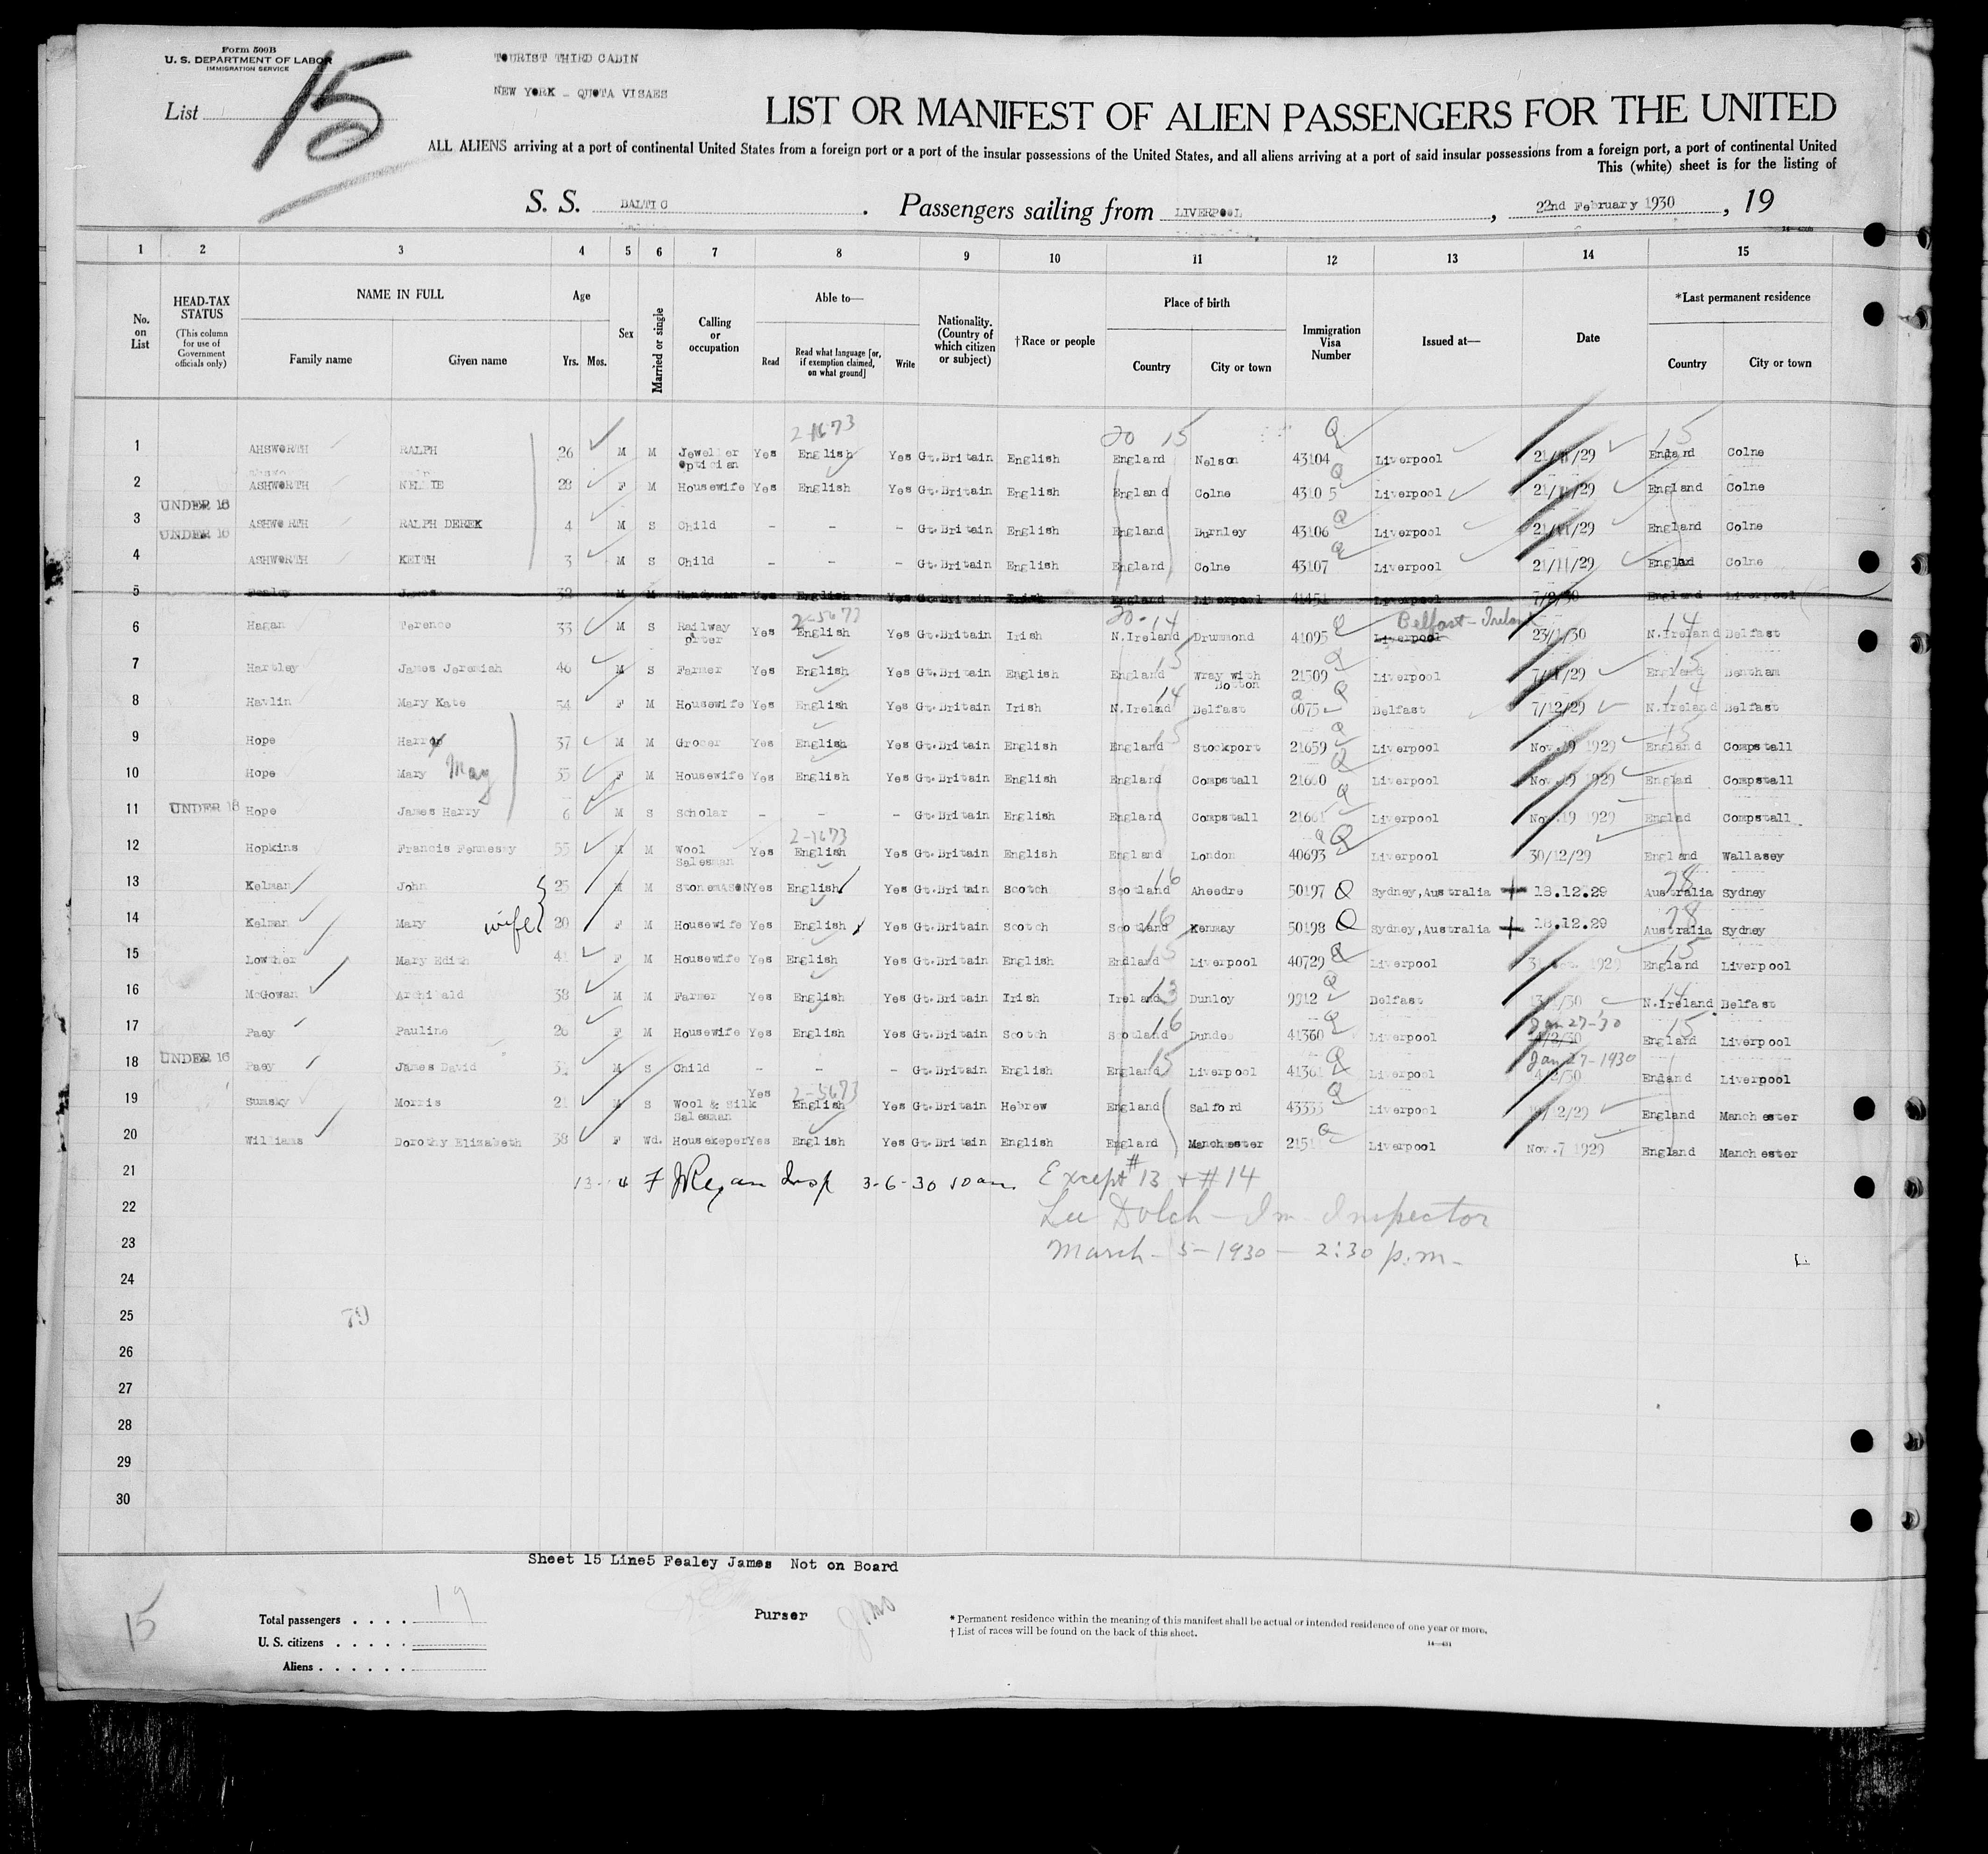 Form 500B
U. S. DEPARTMENT OF LABOR
IMMIGRATION SERVICE
List 15
TOURIST THIRD CABIN
NEW YORK - QUOTA VISAES
LIST OR MANIFEST OF ALIEN PASSENGERS FOR THE UNITED
ALL ALIENS arriving at a port of continental United States from a foreign port or a port of the insular possessions of the United States, and all aliens arriving at a port of said insular possessions from a foreign port, a port of continental United
This (white) sheet is for the listing of
S. S. BALTIC . Passengers sailing from LIVERPOOL , 22nd February 1930 , 19
1 2 3 4 5 6 7 8 9 10 11 12 13 14 15
No. on List
HEAD-TAX STATUS (This column for use of Government officials only)
NAME IN FULL Family name Given name
Age Yrs. Mos.
Sex
Married or single
Calling or occupation
Able to— Read Read what language [or, if exemption claimed, on what ground] Write
Nationality. (Country of which citizen or subject)
†Race or people
Place of birth Country City or town
Immigration Visa Number
Issued at—
Date
*Last permanent residence Country City or town
2-1673 20 15 Q 15
1 AHSWORTH RALPH 26 M M Jeweller Optician Yes English Yes Gt.Britain English England Nelson 43104 Liverpool 21/11/29 England Colne
2 ASHWORTH NELLIE 28 F M Housewife Yes English Yes Gt.Britain English England Colne 43105 Q Liverpool 21/11/29 England Colne
UNDER 16
3 ASHWORTH RALPH DEREK 4 M S Child - - - Gt.Britain English England Burnley 43106 Q Liverpool 21/11/29 England Colne
UNDER 16
4 ASHWORTH KEITH 3 M S Child - - - Gt.Britain English England Colne 43107 Q Liverpool 21/11/29 England Colne
5 Fealey James 32 M M Handyman Yes English Yes Gt.Britain Irish England Liverpool 41451 Liverpool 7/2/30 England Liverpool
2-5673 20-14 Belfast-Ireland 14
6 Hagan Terence 33 M S Railway orter Yes English Yes Gt.Britain Irish N.Ireland Drummond 41095 Q Liverpool 23/1/30 N.Ireland Belfast
7 Hartley James Jeremiah 46 M S Farmer Yes English Yes Gt.Britain English England 15 Wray with Botton 21509 Q Liverpool 7/11/29 England 15 Bentham
8 Havlin Mary Kate 54 F M Housewife Yes English Yes Gt.Britain Irish N.Irelnd 14 Belfast 6075 Q Belfast 7/12/29 N.Ireland 14 Belfast
9 Hope Harry 37 M M Grocer Yes English Yes Gt.Britain English England 15 Stockport 21659 Q Liverpool Nov.19 1929 England 15 Compstall
10 Hope Mary May 35 F M Housewife Yes English Yes Gt.Britain English England Compstall 21660 Q Liverpool Nov.19 1929 Englad Compstall
11 UNDER 16 Hope James Harry 6 M S Scholar - - - Gt.Britain English England Compstall 21661 Q Liverpool Nov.19 1929 Englnd Compstall
2-1673
12 Hopkins Francis Fennessy 55 M M Wool Salesman Yes English Yes Gt.Britain English England London 40693 Q Q Liverpool 30/12/29 England Wallasey
13 Kelman John 25 M M Stonemason Yes English Yes Gt.Britain Scotch Scotland 16 Aheedre 50197 Q Sydney,Australia + 18.12.29 Australia 28 Sydney
14 Kelman Mary wife 20 F M Housewife Yes English Yes Gt.Britain Scotch Scotland 16 Kenmay 50198 Q Sydney,Australia + 18.12.29 Australia 28 Sydney
15 Lowther Mary Edith 41 F M Housewife Yes English Yes Gt.Britain English England 15 Liverpool 40729 Q Liverpool 1929 England 15 Liverpool
16 McGowan Archibald 38 M M Farmer Yes English Yes Gt.Britain Irish Ireland 13 Dunloy 9912 Q Belfast 13/1/30 N.Ireland 14 Belfast
17 Paey Pauline 26 F M Housewife Yes English Yes Gt.Britain Scotch Scotland 16 Dundee 41360 Q Liverpool Jan 27-'30 4/2/30 England 15 Liverpool
18 UNDER 16 Paey James David 3½ M S Child - - - Gt.Britain English England 15 Liverpool 41361 Q Liverpool Jan 27-1930 4/2/30 England Liverpool
2-5673
19 Sumsky Morris 21 M S Wool & Silk Salesman Yes English Yes Gt.Britain Hebrew England Salford 43333 Q Liverpool /12/29 England Manchester
20 Williams Dorothy Elizabeth 38 F Wd. Housekeper Yes English Yes Gt.Britain English England Manchester 2151 Q Liverpool Nov.7 1929 England Manchester
21 13-14 F J Regan Insp 3-6-30 10 am. Except #13 + #14
22 Lee Dolch - Im. Inspector
23 March - 5 - 1930 - 2:30 p.m.
24
25 79
26
27
28
29
30
Sheet 15 Line5 Fealey James Not on Board
15
Total passengers . . . . 19
U. S. citizens . . . . .
Aliens . . . . . .
Purser
* Permanent residence within the meaning of this manifest shall be actual or intended residence of one year or more.
† List of races will be found on the back of this sheet.